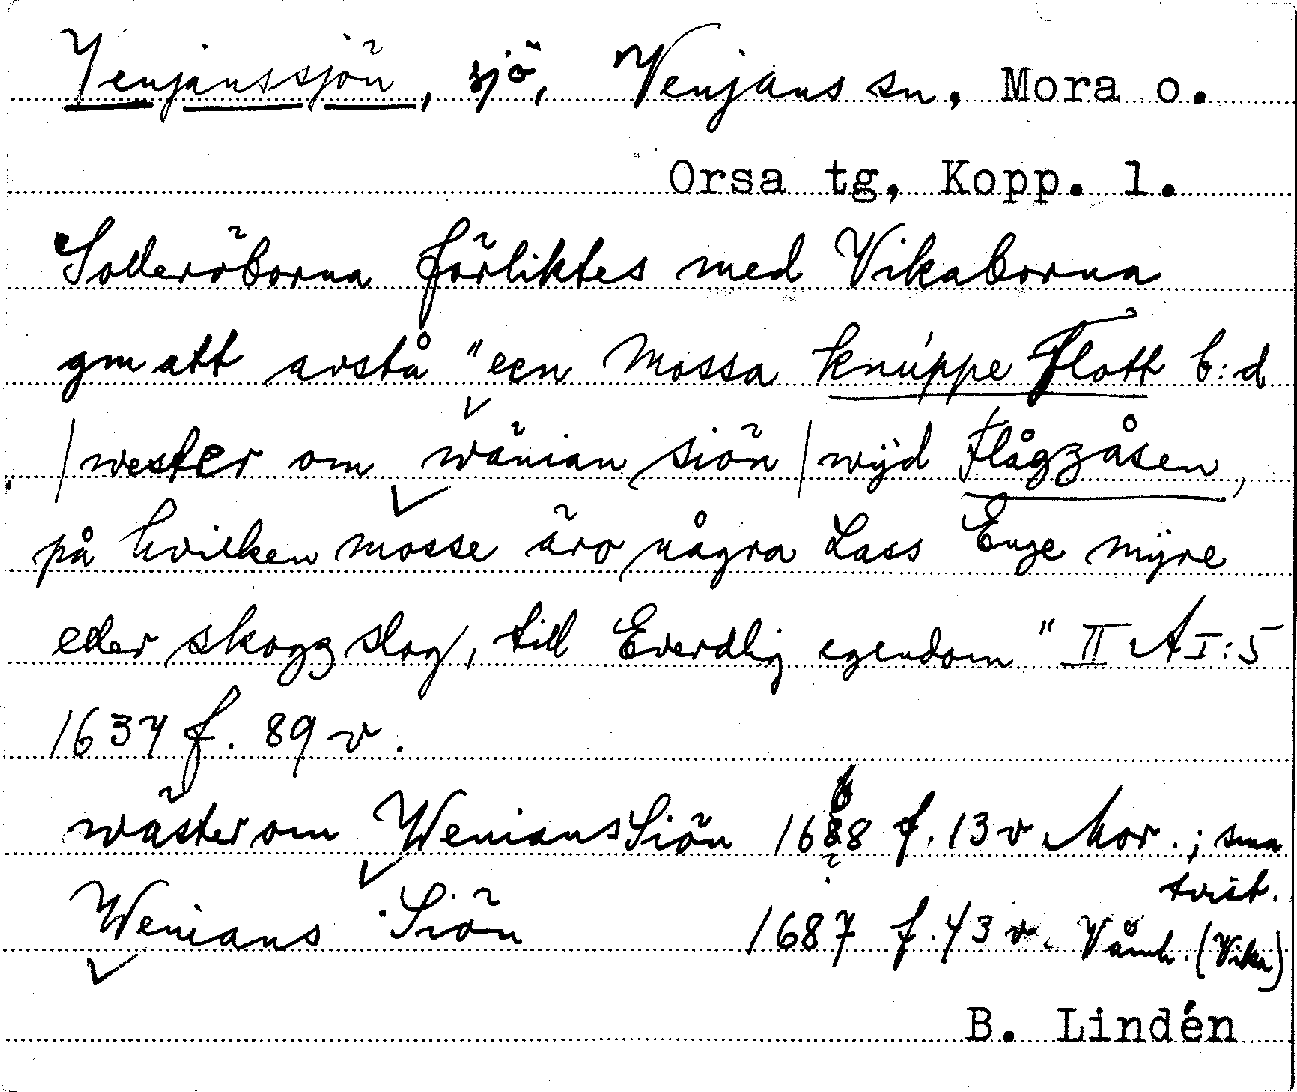 Venjanssjön, sjö, Venjans sn, Mora o.
Orsa tg, Kopp. l.
Solleröborna förliktes med Vikaborna
gm att avstå "een Mossa knúppe Flott b:d
/wester om wänian siön/ wÿd Flågzåsen,
på hvilken mosse äro några Lass Enge mÿre
eller skogz slog, till Everdlig egendom" II AI:5
1637 f. 89 v.
wäster om Wenians Siön 1688 f. 13 v Mor.; sma
tvist.
Wenians Siön 1687 f. 43 v. Våmh. (Vika)
B. Lindén